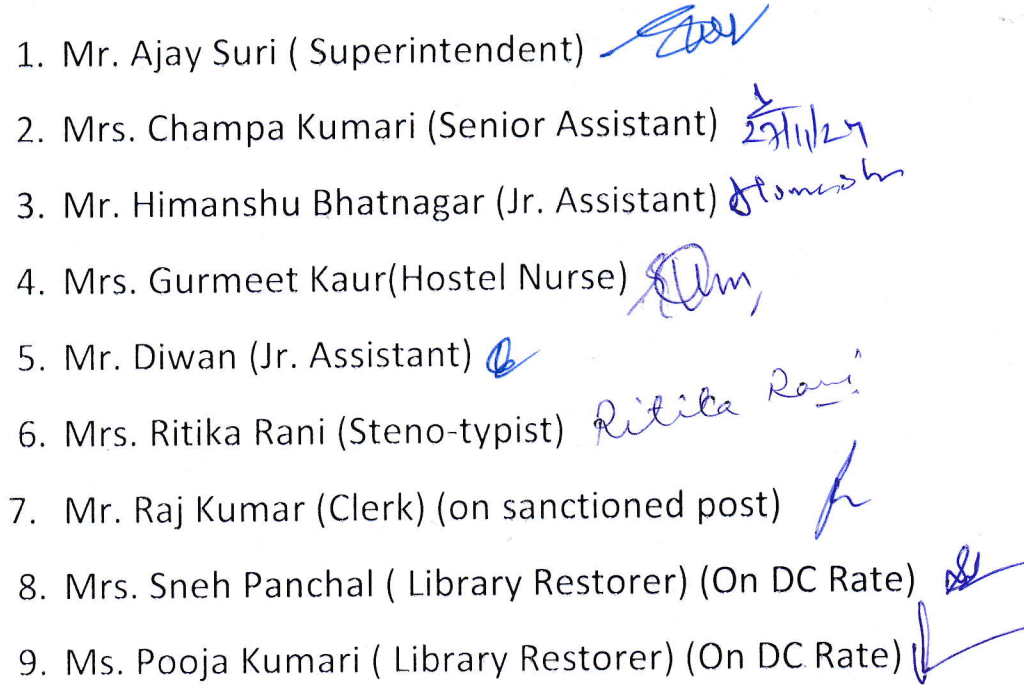 1. Mr. Ajay Suri ( Superintendent)
2. Mrs. Champa Kumari (Senior Assistant) 27/11/24
3. Mr. Himanshu Bhatnagar (Jr. Assistant)
4. Mrs. Gurmeet Kaur(Hostel Nurse)
5. Mr. Diwan (Jr. Assistant)
6. Mrs. Ritika Rani (Steno-typist) Ritika Rani
7. Mr. Raj Kumar (Clerk) (on sanctioned post)
8. Mrs. Sneh Panchal ( Library Restorer) (On DC Rate)
9. Ms. Pooja Kumari ( Library Restorer) (On DC Rate)